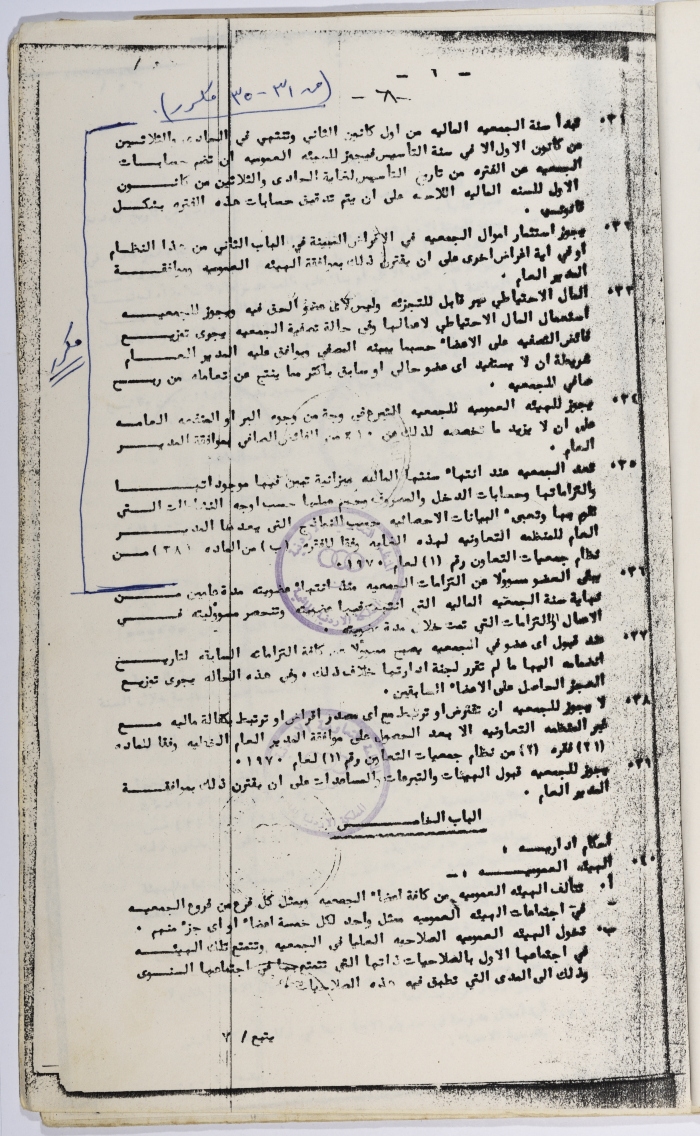 - ٦ -
- ٨ -
(من ٣١ - ٣٥ مكرر).
مكرر
٣١. تبدأ سنة الجمعيه الماليه من اول كانون الثاني وتنتهي في الحادى والثلاثين
من كانون الاول الا في سنة التأسيس فيجوز للهيئه العموميه ان تضم حسابات
الجمعيه عن الفتره من تاريخ التأسيس لغاية الحادى والثلاثين من كانون
الاول للسنه الماليه اللاحقه على ان يتم تدقيق حسابات هذه الفتره بشكل
قانوني.
٣٢. يجوز استثمار اموال الجمعيه في الاغراض المبينة في الباب الثاني من هذا النظام
او في اية اغراض اخرى على ان يقترن ذلك بموافقة الهيئه العموميه وموافقة
المدير العام.
٣٣. المال الاحتياطي غير قابل للتجزئه وليس لاى عضو الحق فيه ويجوز للجمعيه
استعمال المال الاحتياطي لاعمالها وفي حالة تصفية الجمعيه يجرى توزيع
فائض التصفيه على الاعضاء حسبما يبينه المصفي ويوافق عليه المدير العام
شريطة ان لا يستفيد اى عضو حالي او سابق باكثر مما ينتج عن تعامله من ربح
صافي للجمعيه.
٣٤. يجوز للهيئه العموميه للجمعيه التبرع في وجه من وجوه البر او المنفعه العامه
على ان لا يزيد ما تخصصه لذلك عن ١٠٪ من الفائض الصافي بموافقة المدير
العام.
٣٥. تعد الجمعيه عند انتهاء سنتها الماليه ميزانية تبين فيها موجوداتها
والتزاماتها وحسابات الدخل والمصروف حسب اوجه النشاطات التي
تقوم بها وتعبىء البيانات الاحصائيه حسب النماذج التي يعدها المدير
العام للمنظمه التعاونيه لهذه الغايه وفقا للفقره (ب) من الماده (٣٨) من
نظام جمعيات التعاون رقم (١) لعام ١٩٧٠.
٣٦. يبقى العضو مسؤولا عن التزامات الجمعيه عند انتهاء عضويته مدة عامين من
نهاية سنة الجمعيه الماليه التي انتهت فيها عضويته وتنحصر مسؤوليته في
الاعمال والالتزامات التي تمت خلال مدة عضويته.
٣٧. عند قبول اى عضو في الجمعيه يصبح مسؤولا عن كافة التزاماته السابقه لتاريخ
انضمامه اليها ما لم تقرر لجنة ادارتها خلاف ذلك. وفي هذه الحاله يجرى توزيع
العجز الحاصل على الاعضاء السابقين.
٣٨. لا يجوز للجمعيه ان تقترض او ترتبط مع اى مصدر اقراض او ترتبط بكفالة ماليه مع
غير المنظمه التعاونيه الا بعد الحصول على موافقة المدير العام الخطيه وفقا للماده
(٢١) فقره (٢) من نظام جمعيات التعاون رقم (١) لعام ١٩٧٠.
٣٩. يجوز للجمعيه قبول الهبات والتبرعات والمساعدات على ان يقترن ذلك بموافقة
المدير العام.
الباب الخامس
احكام اداريه :
٤٠. الهيئه العموميه : -
أ. تتألف الهيئه العموميه من كافة اعضاء الجمعيه ويمثل كل فرع من فروع الجمعيه
في اجتماعات الهيئه العموميه ممثل واحد لكل خمسة اعضاء او اى جزء منهم.
ب. تخول الهيئه العموميه الصلاحيه العليا في الجمعيه وتتمتع تلك الهيئه
في اجتماعها الاول بالصلاحيات ذاتها التي تتمتع بها في اجتماعها السنوى
وذلك الى المدى التي تطبق فيه هذه الصلاحيات.
يتبع / ٧